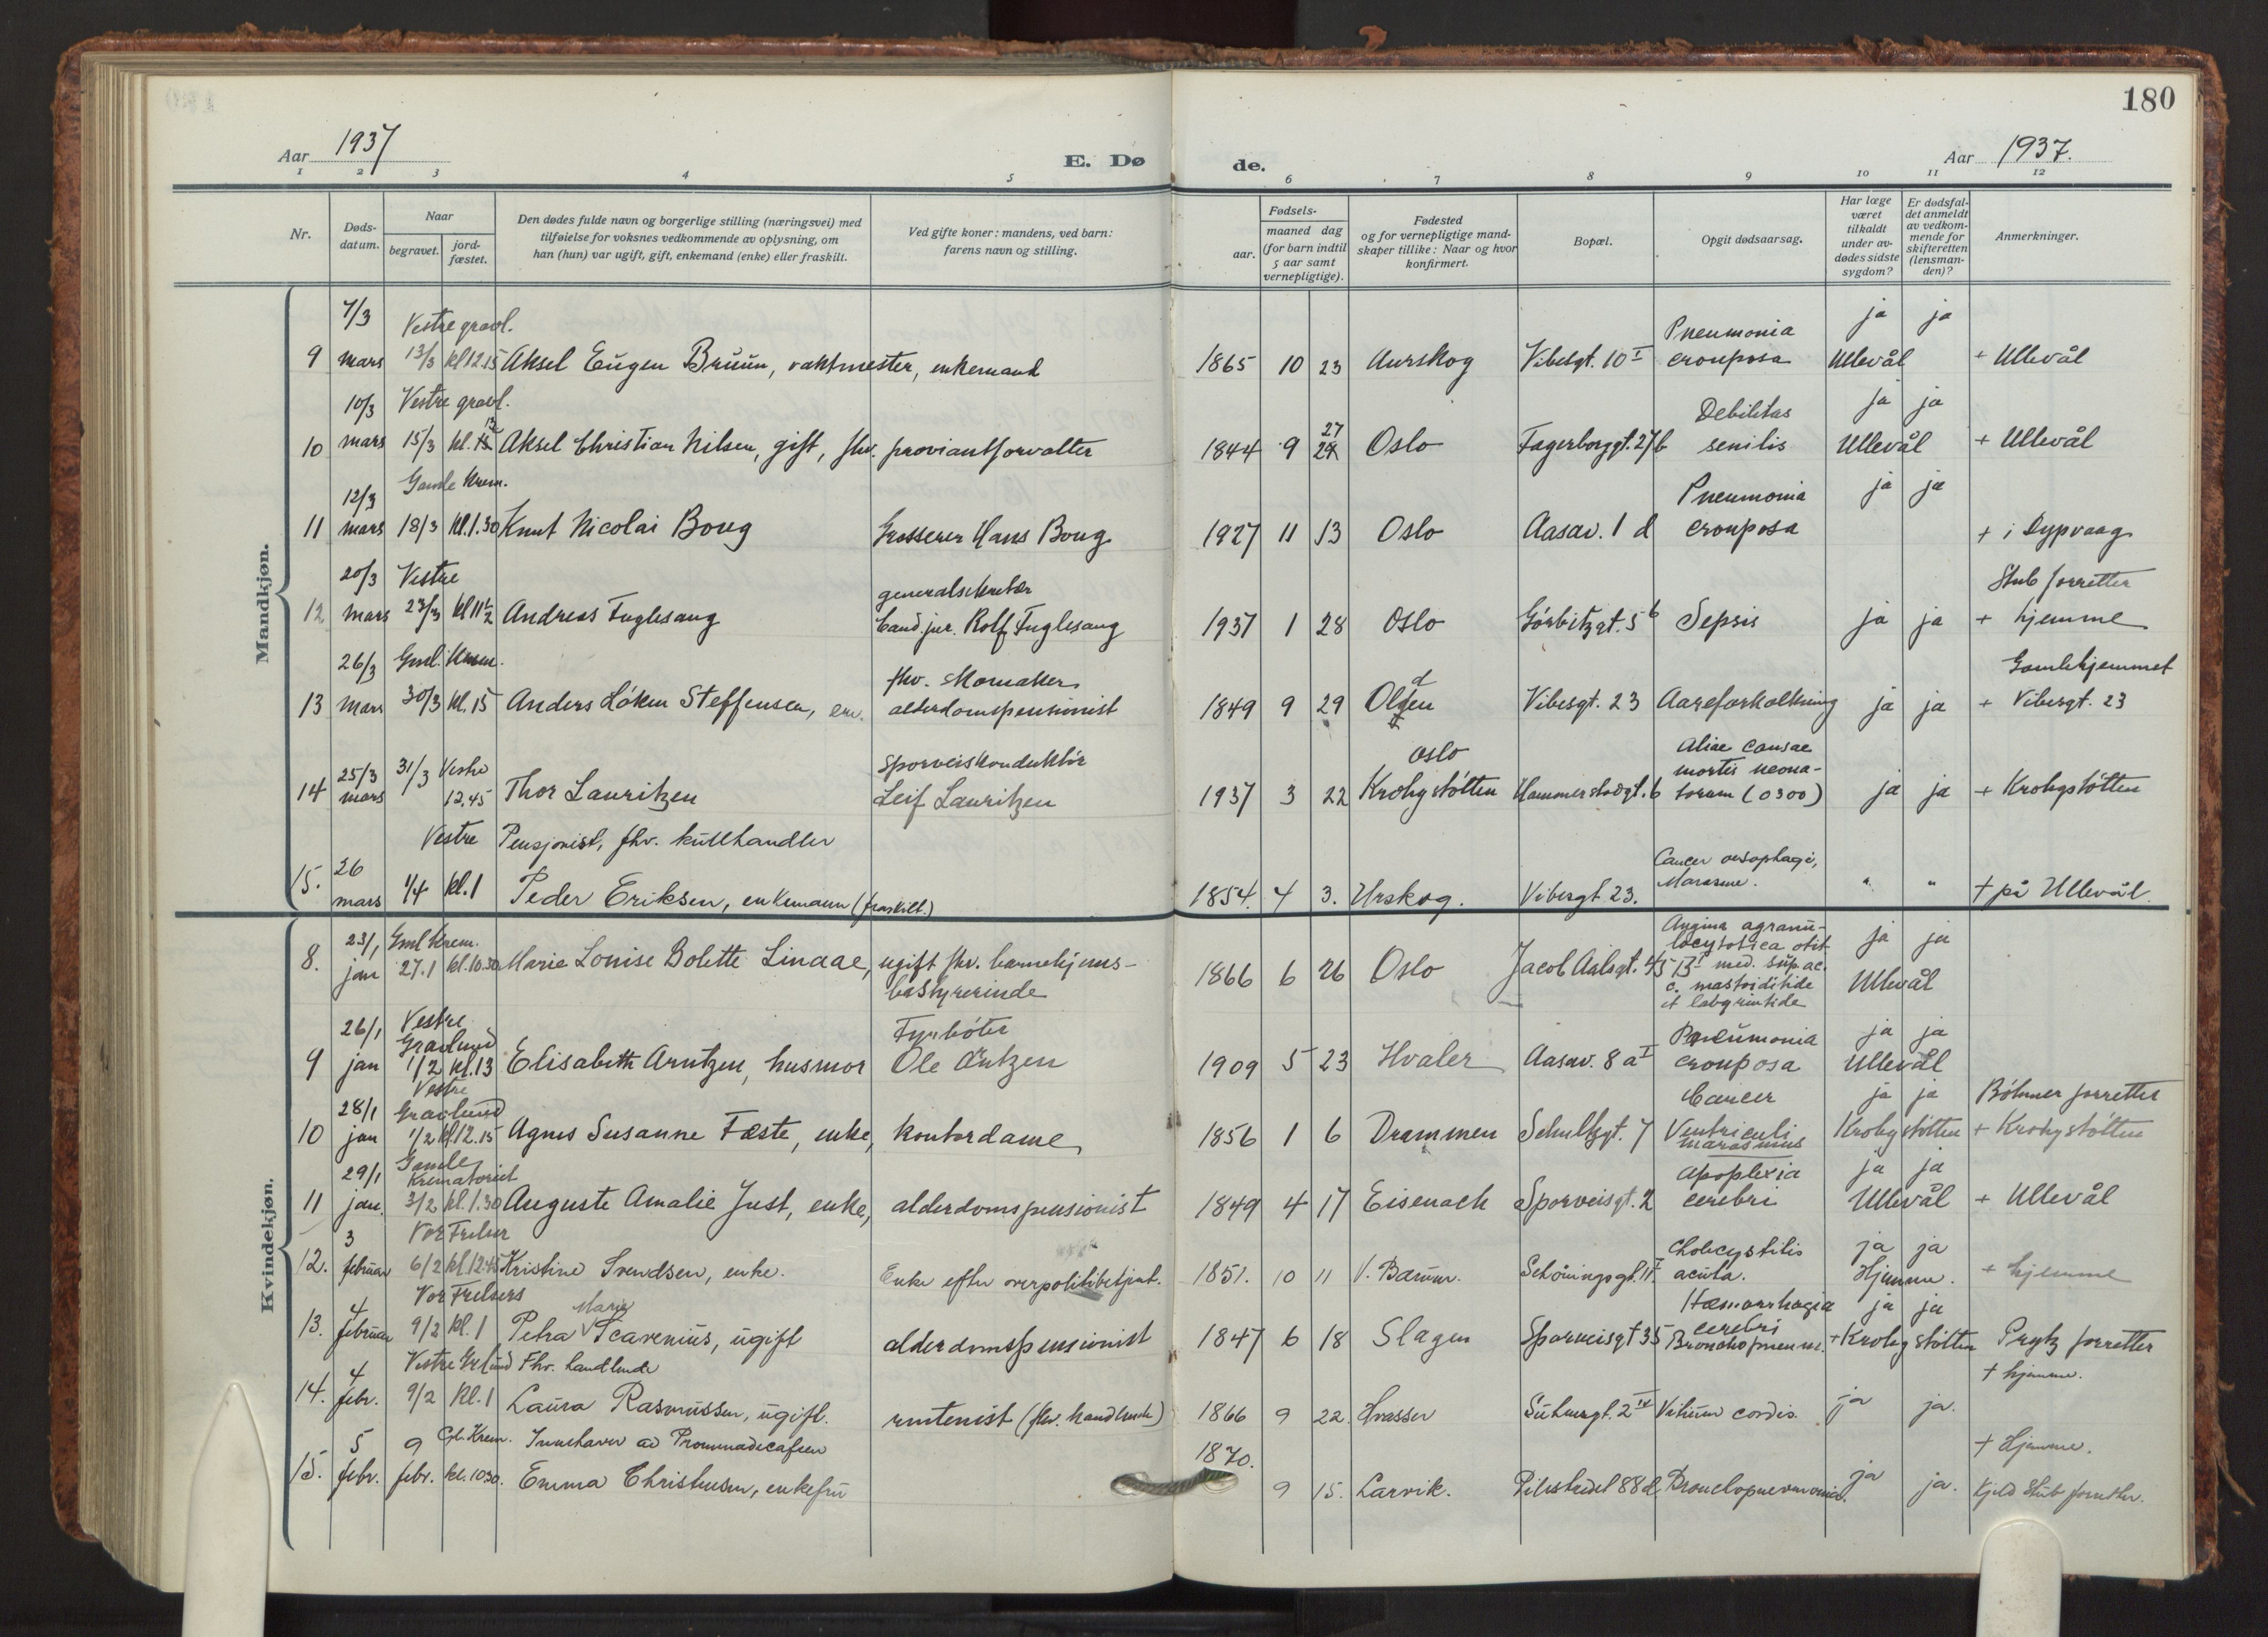 180
Aar 1937
E. Døde.
Aar 1937.
1 2 3 4 5 6 7 8 9 10 11 12
Nr.
Døds-datum.
Naar
begravet.
jord-fæstet.
Den dødes fulde navn og borgerlige stilling (næringsvei) med
tilføielse for voksnes vedkommende av oplysning, om
han (hun) var ugift, gift, enkemand (enke) eller fraskilt.
Ved gifte koner: mandens, ved barn:
farens navn og stilling.
Fødsels-
aar.
maaned dag
(for barn indtil
5 aar samt
vernepligtige).
Fødested
og for vernepligtige mand-
skaper tillike: Naar og hvor
konfirmert.
Bopæl.
Opgit dødsaarsag.
Har læge
været
tilkaldt
under av-
dødes sidste
sygdom?
Er dødsfal-
det anmeldt
av vedkom-
mende for
skifteretten
(lensman-
den)?
Anmerkninger.
Mandkjøn.
7/3 Vestre gravl. Pneumonia ja ja
9 mars 13/3 kl 12.15 Aksel Eugen Bruun, vaktmester, enkemand 1865 10 23 Aurskog Vibesgt. 10 I crouposa Ullevål + Ullevål
10/3 Vestre gravl. 27 Debilitas ja ja
10 mars 15/3 kl. Aksel Christian Nilsen, gift, fhv. proviantforvalter 1844 9 Oslo Fagerborggt. 27b senilis Ullevål + Ullevål
12/3 Gamle Krem. Pneumonia ja ja
11 mars 18/3 kl.1.30 Knut Nicolai Boug Grosserer Hans Boug 1927 11 13 Oslo Aasav. 1 d crouposa + i Dypvaag
20/3 Vestre generalsekretær Stub forretter
12 mars 23/3 kl 11 1/2 Andreas Fuglesang Cand. jur. Rolf Fuglesang 1937 1 28 Oslo Görbitzgt. 5 b Sepsis ja ja + hjemme
26/3 Gml. Krem. fhv. skomaker Gamlehjemmet
13 mars 30/3 kl. 15 Anders Løken Steffensen, em. alderdomspensionist 1849 9 29 Vibesgt. 23 Aareforkalkning ja ja + Vibesgt. 23
25/3 31/3 Vestre sporveiskonduktør Oslo Aliae causae
mortis neona-
14 mars 12.45 Thor Lauritzen Leif Lauritzen 1937 3 22 Krohgstøtten Hammerstadgt. 6 torum (0300) ja ja + Krohgstøtten
Vestre Pensjonist, fhv. kullhandler
26 Cancer oesophagi,
15. mars 1/4 kl. 1 Peder Eriksen, enkemann (fraskilt.) 1854. 4 3. Urskog. Vibesgt. 23. Marasme. " " + på Ullevål
Kvindekjøn.
23/1 Gml Krem. Angina agranu-
locytotica otit ja ja
8. jan 27.1 kl. 10.30 Marie Louise Bolette Linaae, ugift fhv. barnehjems- 1866 6 26 Oslo Jacob Aalsgt. 45 med. sup. ac.
bestyrerinde c. mastoiditide Ullevål
et labyrintide
26/1 Vestre Gravlund Fyrbøter Pneumonia ja ja
9 jan 1/2 kl. 13 Elisabeth Arntzen, husmor Ole Arntzen 1909 5 23 Hvaler Aasav. 8 a I crouposa Ullevål
28/1 Vestre Gravlund Cancer ja ja Böhmer forretter
10 jan 1/2 kl 12.15 Agnes Susanne Fæste, enke, kontordame 1856 1 6 Drammen Schultzgt. 7 Ventriculi Krohgstøtten + Krohgstøtten
marasmus
29/1 Gamle Krematoriet Apoplexia ja ja
11 jan. 3/2 kl. 1.30 Auguste Amalie Just, enke, alderdomspensionist 1849 4 17 Eisenach Sporveisgt. 2 cerebri Ullevål + Ullevål
3 Vor Frelser Cholecystitis ja ja
12. februar 6/2 kl 12.45 Kristine Svendsen, enke. Enke efter overpolitibetjent. 1851. 10 11 V. Bærum. Schøningsgt. 11 I acuta. Hjemme. + hjemme
4 Vor Frelsers Marie Hæmorrhagia ja ja
cerebri
13. februar 9/2 kl. 1 Petra Scavenius, ugift alderdomspensionist 1847 6 18 Slagen Sporveisgt 35 Bronchopneum. + Krohgstøtten Prytz forretter
4 Vestre Grlund Fhv. handlende + hjemme.
14. febr. 9/2 Kl. 1 Laura Rasmussen, ugift. rentenist (fhv. handlende) 1866 9 22. Hvasser Suhmsgt. 2 IV Vitium cordis. ja ja.
5 9 Gl. Krem. Innehaver av Promenadecafeen 1870. + Hjemme.
15. febr. febr. kl. 1030. Emma Christensen, enkefru 9 15. Larvik. Pilestredet 88d. Bronchopneumonia. ja ja. Kjeld Stub forretter.